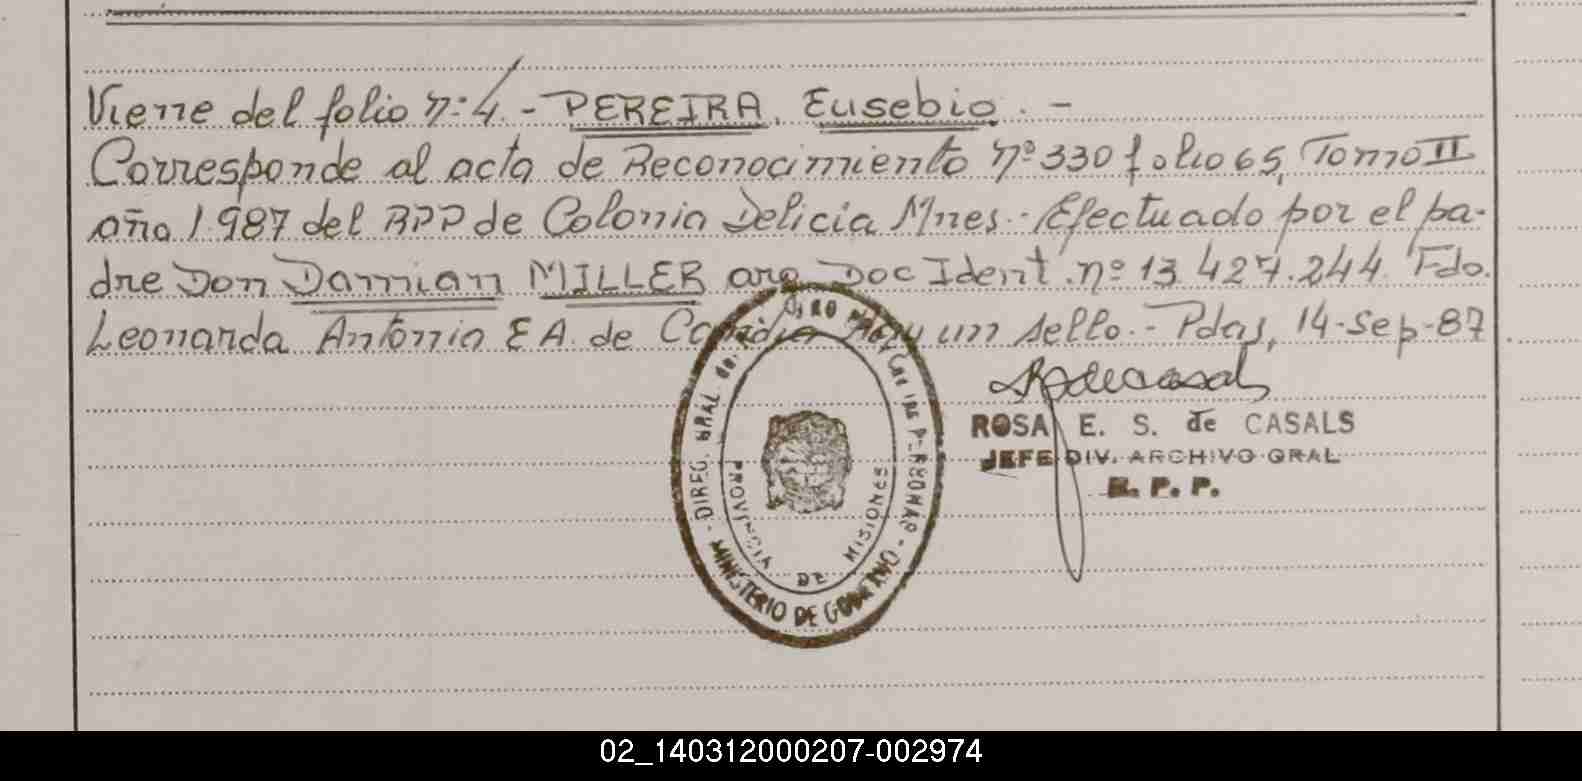 Viene del folio nº 4.- PEREIRA, Eusebio. -
Corresponde al acta de Reconocimiento nº 330 folio 65, Tomo II
año 1.987 del RPP de Colonia Delicia Mnes.- Efectuado por el pa-
dre Don Damian MILLER arg Doc Ident. nº 13.427.244. Fdo.
Leonarda Antonia E A. de Hay un sello.- Pdas, 14-Sep-87
ROSA E. S. de CASALS
JEFE DIV. ARCHIVO GRAL
R. P. P.
- DIREC. GRAL. de PERSONAS -
MINISTERIO DE GOBIERNO
PROVINCIA DE MISIONES
02_140312000207-002974